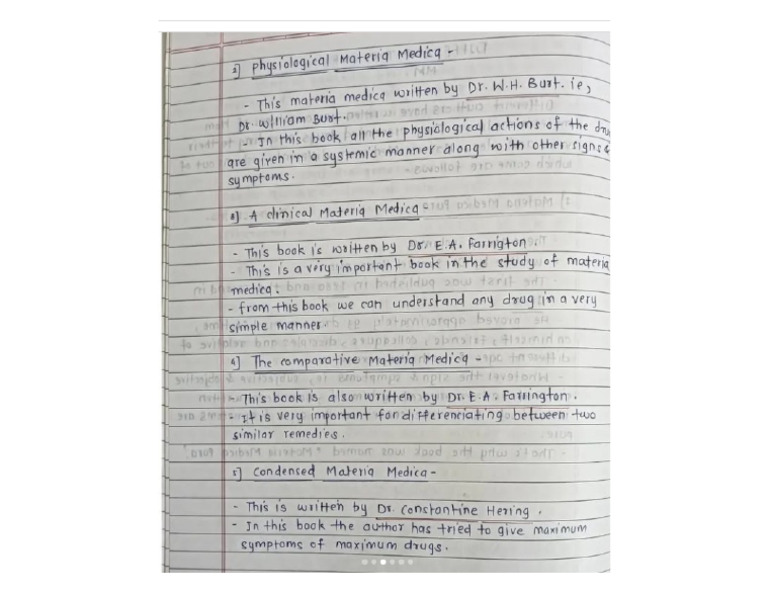 2] Physiological Materia Medica -
- This materia medica written by Dr. W.H. Burt. ie,
Dr. William Burt.
- In this book all the physiological actions of the dru
are given in a systemic manner along with other signs &
symptoms.
3] A clinical Materia Medica -
- This book is written by Dr. E.A. Farrigton.
- This is a very important book in the study of materia
medica.
- from this book we can understand any drug in a very
simple manner.
4] The comparative Materia Medica -
- This book is also written by Dr. E.A. Farrington.
- It is very important for differenciating between two
similar remedies.
5] Condensed Materia Medica -
- This is written by Dr. Constantine Hering.
- In this book the author has tried to give maximum
symptoms of maximum drugs.